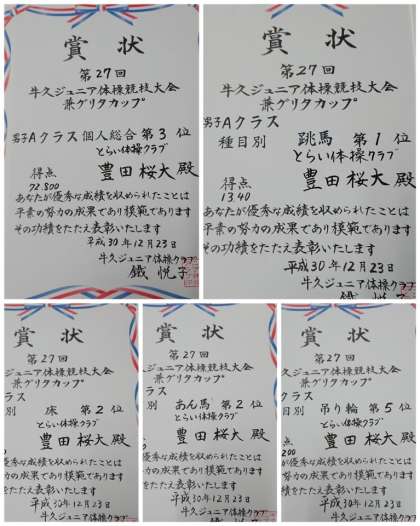 賞状
第27回
牛久ジュニア体操競技大会
兼グリタカップ
男子Aクラス 個人総合 第3位
とらい体操クラブ
得点 豊田 桜大 殿
72.800
あなたが優秀な成績を収められたことは
平素の努力の成果であり模範であります
その功績をたたえ表彰いたします
平成30年12月23日
牛久ジュニア体操クラブ
鐵 悦子
賞状
第27回
牛久ジュニア体操競技大会
兼グリタカップ
男子Aクラス
種目別 跳馬 第1位
とらい体操クラブ
得点 豊田 桜大 殿
13.40
あなたが優秀な成績を収められたことは
平素の努力の成果であり模範であります
その功績をたたえ表彰いたします
平成30年12月23日
牛久ジュニア体操クラブ
鐵 悦子
賞状
第27回
ジュニア体操競技大会
兼グリタカップ
ラス
別 床 第2位
とらい体操クラブ
豊田 桜大 殿
優秀な成績を収められたことは
力の成果であり模範であります
をたたえ表彰いたします
平成30年12月23日
牛久ジュニア体操クラブ
賞状
第27回
ジュニア体操競技大会
兼グリタカップ
ラス
別 あん馬 第2位
とらい体操クラブ
豊田 桜大 殿
優秀な成績を収められたことは
力の成果であり模範であります
をたたえ表彰いたします
平成30年12月23日
牛久ジュニア体操クラブ
賞状
第27回
ジュニア体操競技大会
兼グリタカップ
クラス
目別 吊り輪 第5位
とらい体操クラブ
点 豊田 桜大 殿
200
優秀な成績を収められたことは
努力の成果であり模範であります
績をたたえ表彰いたします
平成30年12月23日
牛久ジュニア体操クラブ